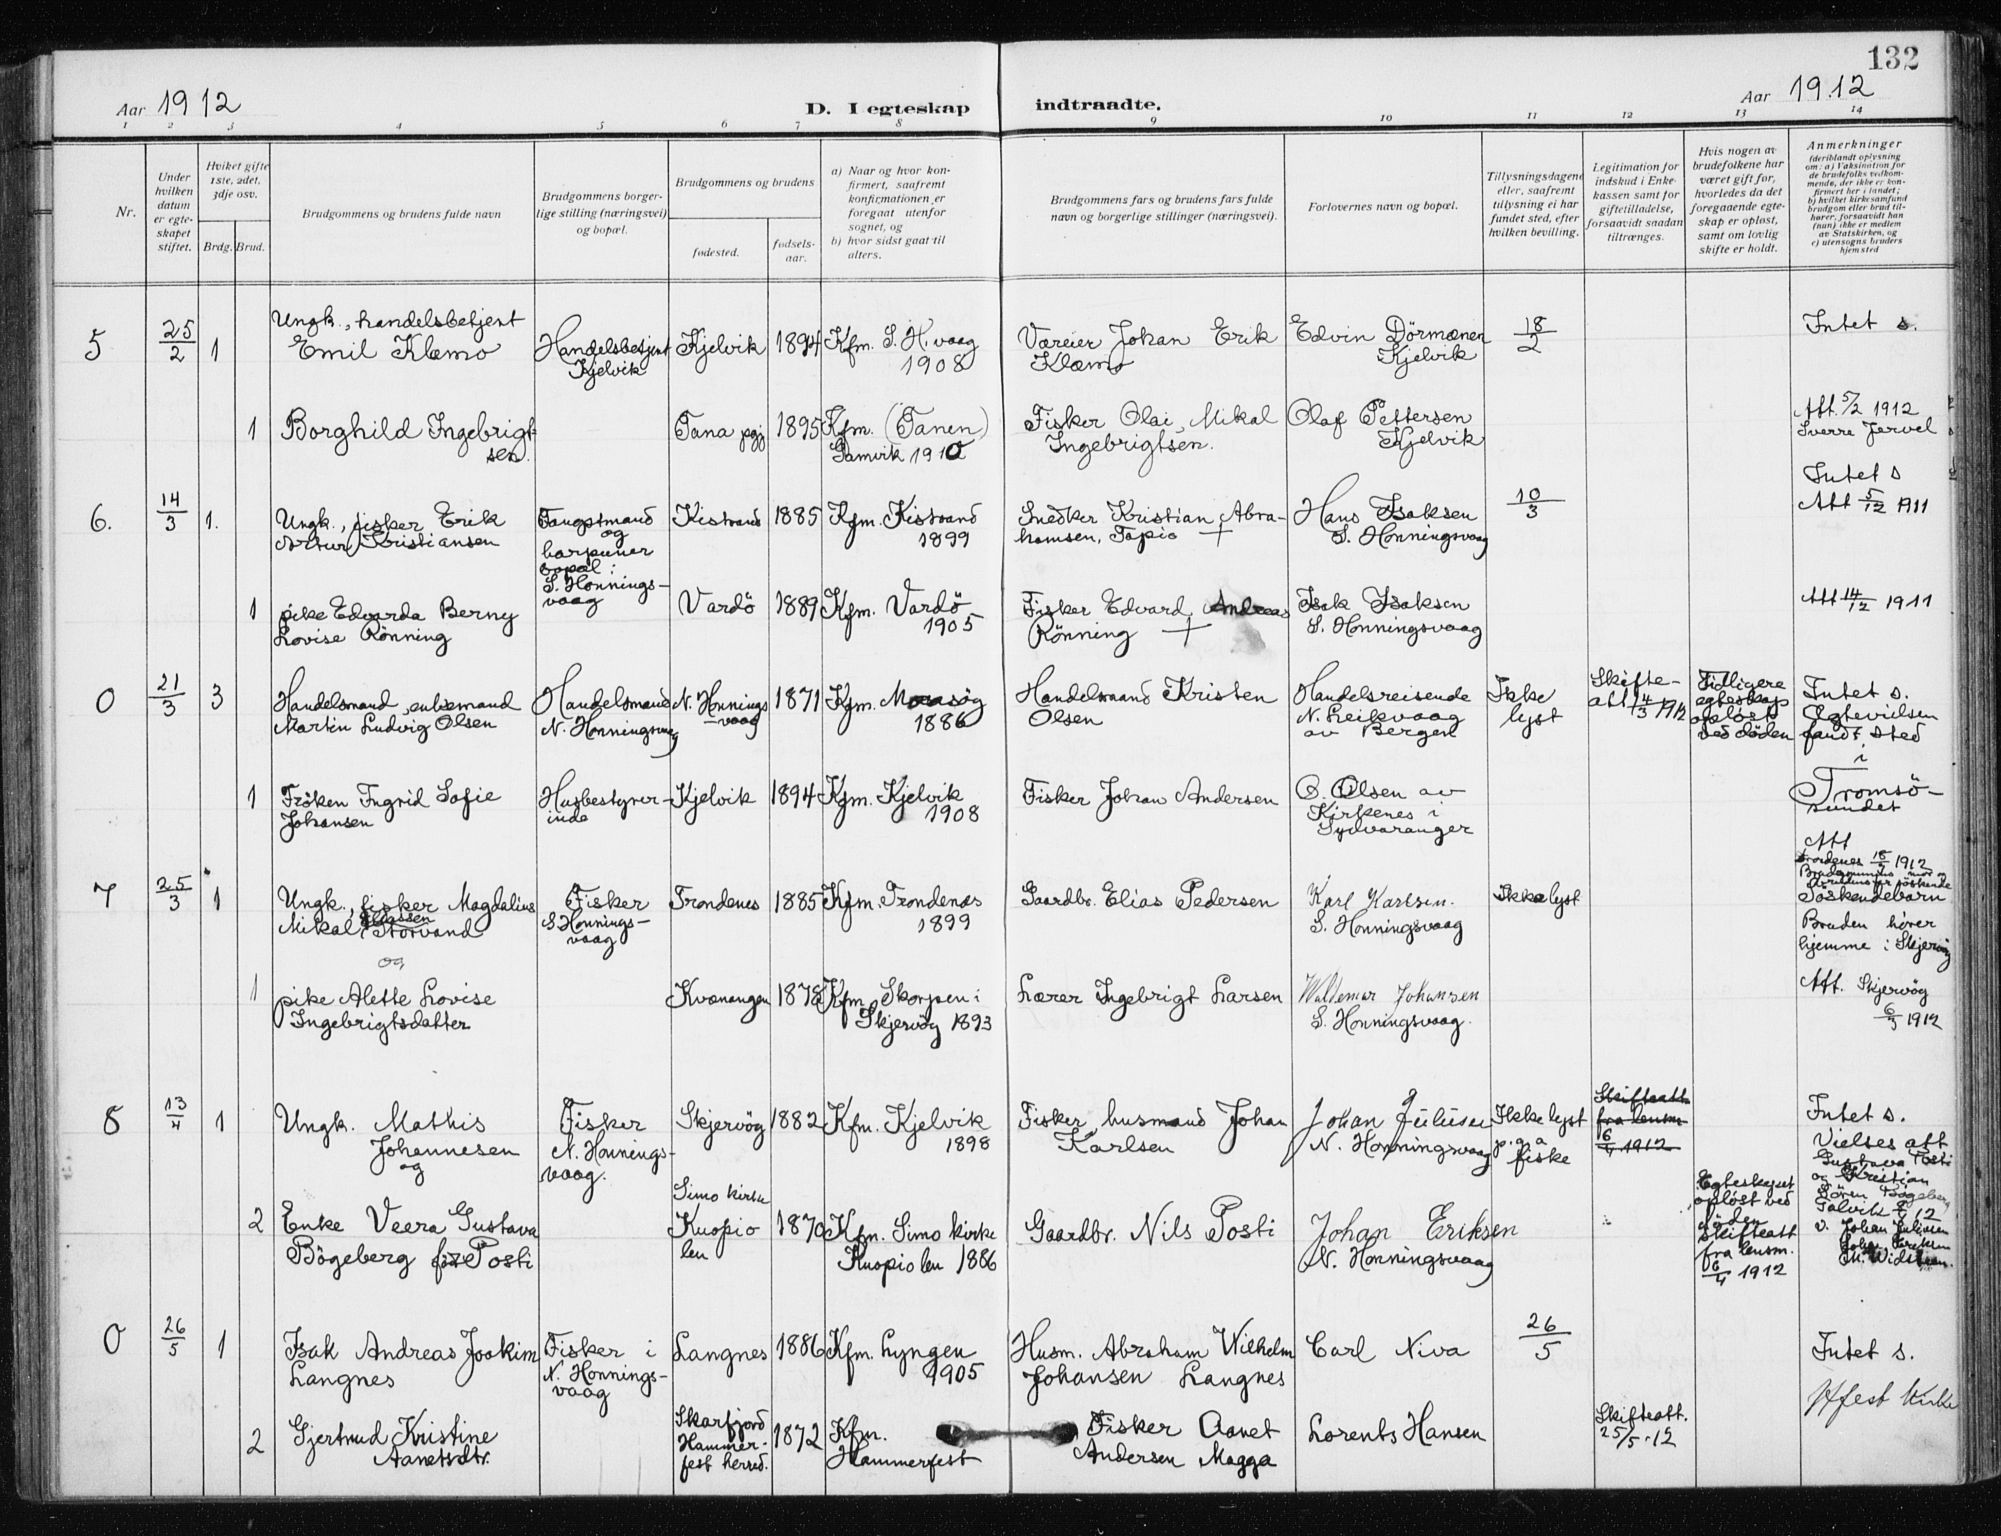 132
Aar 1912
D. I egteskap indtraadte.
Aar 1912
1 2 3 4 5 6 7 8 9 10 11 12 13 14
Nr.
Under hvilken datum er egteskapet stiftet.
Hvilket gifte 1ste, 2det, 3dje osv.
Brdg. Brud.
Brudgommens og brudens fulde navn
Brudgommens borgerlige stilling (næringsvei) og bopæl.
Brudgommens og brudens
fødested.
fødselsaar.
a) Naar og hvor konfirmert, saafremt konfirmationen er foregaat utenfor sognet, og
b) hvor sidst gaat til alters.
Brudgommens fars og brudens fars fulde navn og borgerlige stillinger (næringsvei).
Forlovernes navn og bopæl.
Tillysningsdagene eller, saafremt tillysning ei har fundet sted, efter hvilken bevilling.
Legitimation for indskud i Enkekassen samt for giftetilladelse, forsaavidt saadan tiltrænges.
Hvis nogen av brudefolkene har været gift før, hvorledes da det foregaaende egteskap er opløst, samt om lovlig skifte er holdt.
Anmerkninger
(deriblandt oplysning om: a) Vaksination for de brudefolks vedkommende, der ikke er konfirmert her i landet; b) hvilket kirkesamfund brudgom eller brud tilhører, forsaavidt han (hun) ikke er medlem av Statskirken, og c) utensogns bruders hjemsted
5
25/2
1
Ungk., handelsbetjent
Emil Klæmo
Handelsbetjent
Kjelvik
Kjelvik
1894
Kfm. S. H. vaag
1908
Væreier Johan Erik
Klæmo
Edvin Dörmænen
Kjelvik
18/2
Intet s.
1
Borghild Ingebrigt-
sen.
Tana pgj
1895
Kfm. (Tanen)
Gamvik 1910
Fisker Olai Mikal
Ingebrigtsen.
Olaf Pettersen
Kjelvik
Att. 5/2 1912
Sverre Jervel
6.
14/3
1.
Ungk., fisker Erik
Artur Kristiansen
Fangstmand
og
harpuner
bopæl:
S. Honnings-
vaag
Kistrand
1885
Kfm. Kistrand
1899
Snedker Kristian Abra-
hamsen, Tapio +
Hans Isaksen
S. Honningsvaag
10/3
Intet s
Att 5/12 1911
1
pike Edvarda Berny
Lovise Rönning
Vardö
1889
Kfm. Vardö
1905
Fisker Edvard Andreas
Rönning +
Isak Isaksen
S. Honningsvaag
Att 14/12 1911
0
21/3
3
Handelsmand, enkemand
Martin Ludvig Olsen
Handelsmand
N. Honningsvaag
N. Honnings
-vaag
1871
Kfm. Maasöy
1886
Handelsmand Kristen
Olsen
Handelsreisende
N. Leikvaag
av Bergen
Ikke
lyst
Skifte-
att 14/3 1912
Tidligere
egteskap
opløst
ved døden
Intet s.
Egtevielsen
fandt sted
i
Tromsö-
sundet
1
Fröken Ingrid Sofie
Johansen
Husbestyrer-
inde
Kjelvik
1894
Kfm. Kjelvik
1908
Fisker Johan Andersen
O. Olsen av
Kirkenes i
Sydvaranger
7
25/3
1
Ungk., fisker Magdalius
Mikal Eliassen Storvand
og
Fisker
S. Honnings-
vaag
Trondenes
1885
Kfm. Trondenes
1899
Gaardbr. Elias Pedersen
Karl Karlsen.
S. Honningsvaag
Ikke lyst
Att
Trondenes 18/2 1912
Brudgommens mor og
Söskendebarn
Bruden hører
hjemme i Skjervöy
1
pike Alette Lovise
Ingebrigtsdatter
Kvænangen
1878
Kfm. Skorpen i
Skjervöy 1893
Lærer Ingebrigt Larsen
Waldemar Johansen
S. Honningsvaag.
Att. Skjervöy
6/3 1912
8
13/4
1
Ungk. Mathis
Johannesen
og
Fisker
N. Honnings-
vaag.
Skjervöy
1882
Kfm. Kjelvik
1898
Fisker, husmand Johan
Karlsen
Johan Juliusen
N. Honningsvaag
Ikke lyst
p. g. a
fiske
Skifteatt
fra lensm.
6/4 1912
Intet s.
Vielses att
Gustava Posti
og Kristian
Sören Bögeberg
Talvik 12
v. Johan Juliusen
Johan Eriksen
2
Enke Veera Gustava
Bögeberg før Posti
Simo kirke
Kuopio
len
1870
Kfm. Simo kirke
Kuopio len 1886
Gaardbr. Nils Posti
Johan Eriksen
N. Honningsvaag
Egteskapet
opløst ved
döden
skifteatt
fra lensm.
6/4 1912
0
26/5
1
Isak Andreas Joakim
Langnes
Fisker i
N. Honnings-
vaag
Langnes
1886
Kfm. Lyngen
1905
Husm. Abraham Wilhelm
Johansen Langnes
Carl Niva
26/5
Intet s.
2
Gjertrud Kristine
Aanetsdtr.
Skarfjord
Hammer-
fest herred.
1872
Kfm.
Hammerfest
Fisker Aanet
Andersen Magga
Lorents Hansen
Skifteatt.
25/5-12
Hfest Kirke